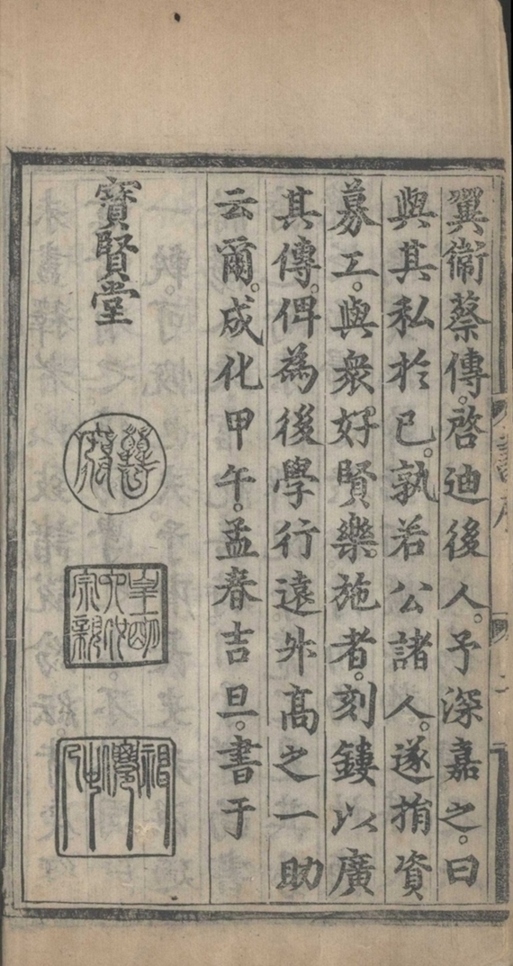 翼衞蔡傳。啓迪後人。予深嘉之。曰
與其私於已。孰若公諸人。遂捐資
募工。與衆好賢樂施者。刻鏤以廣
其傳。俾為後學行遠升高之一助
云爾。成化甲午。孟春吉旦。書于
寶賢堂
皇明
宗親